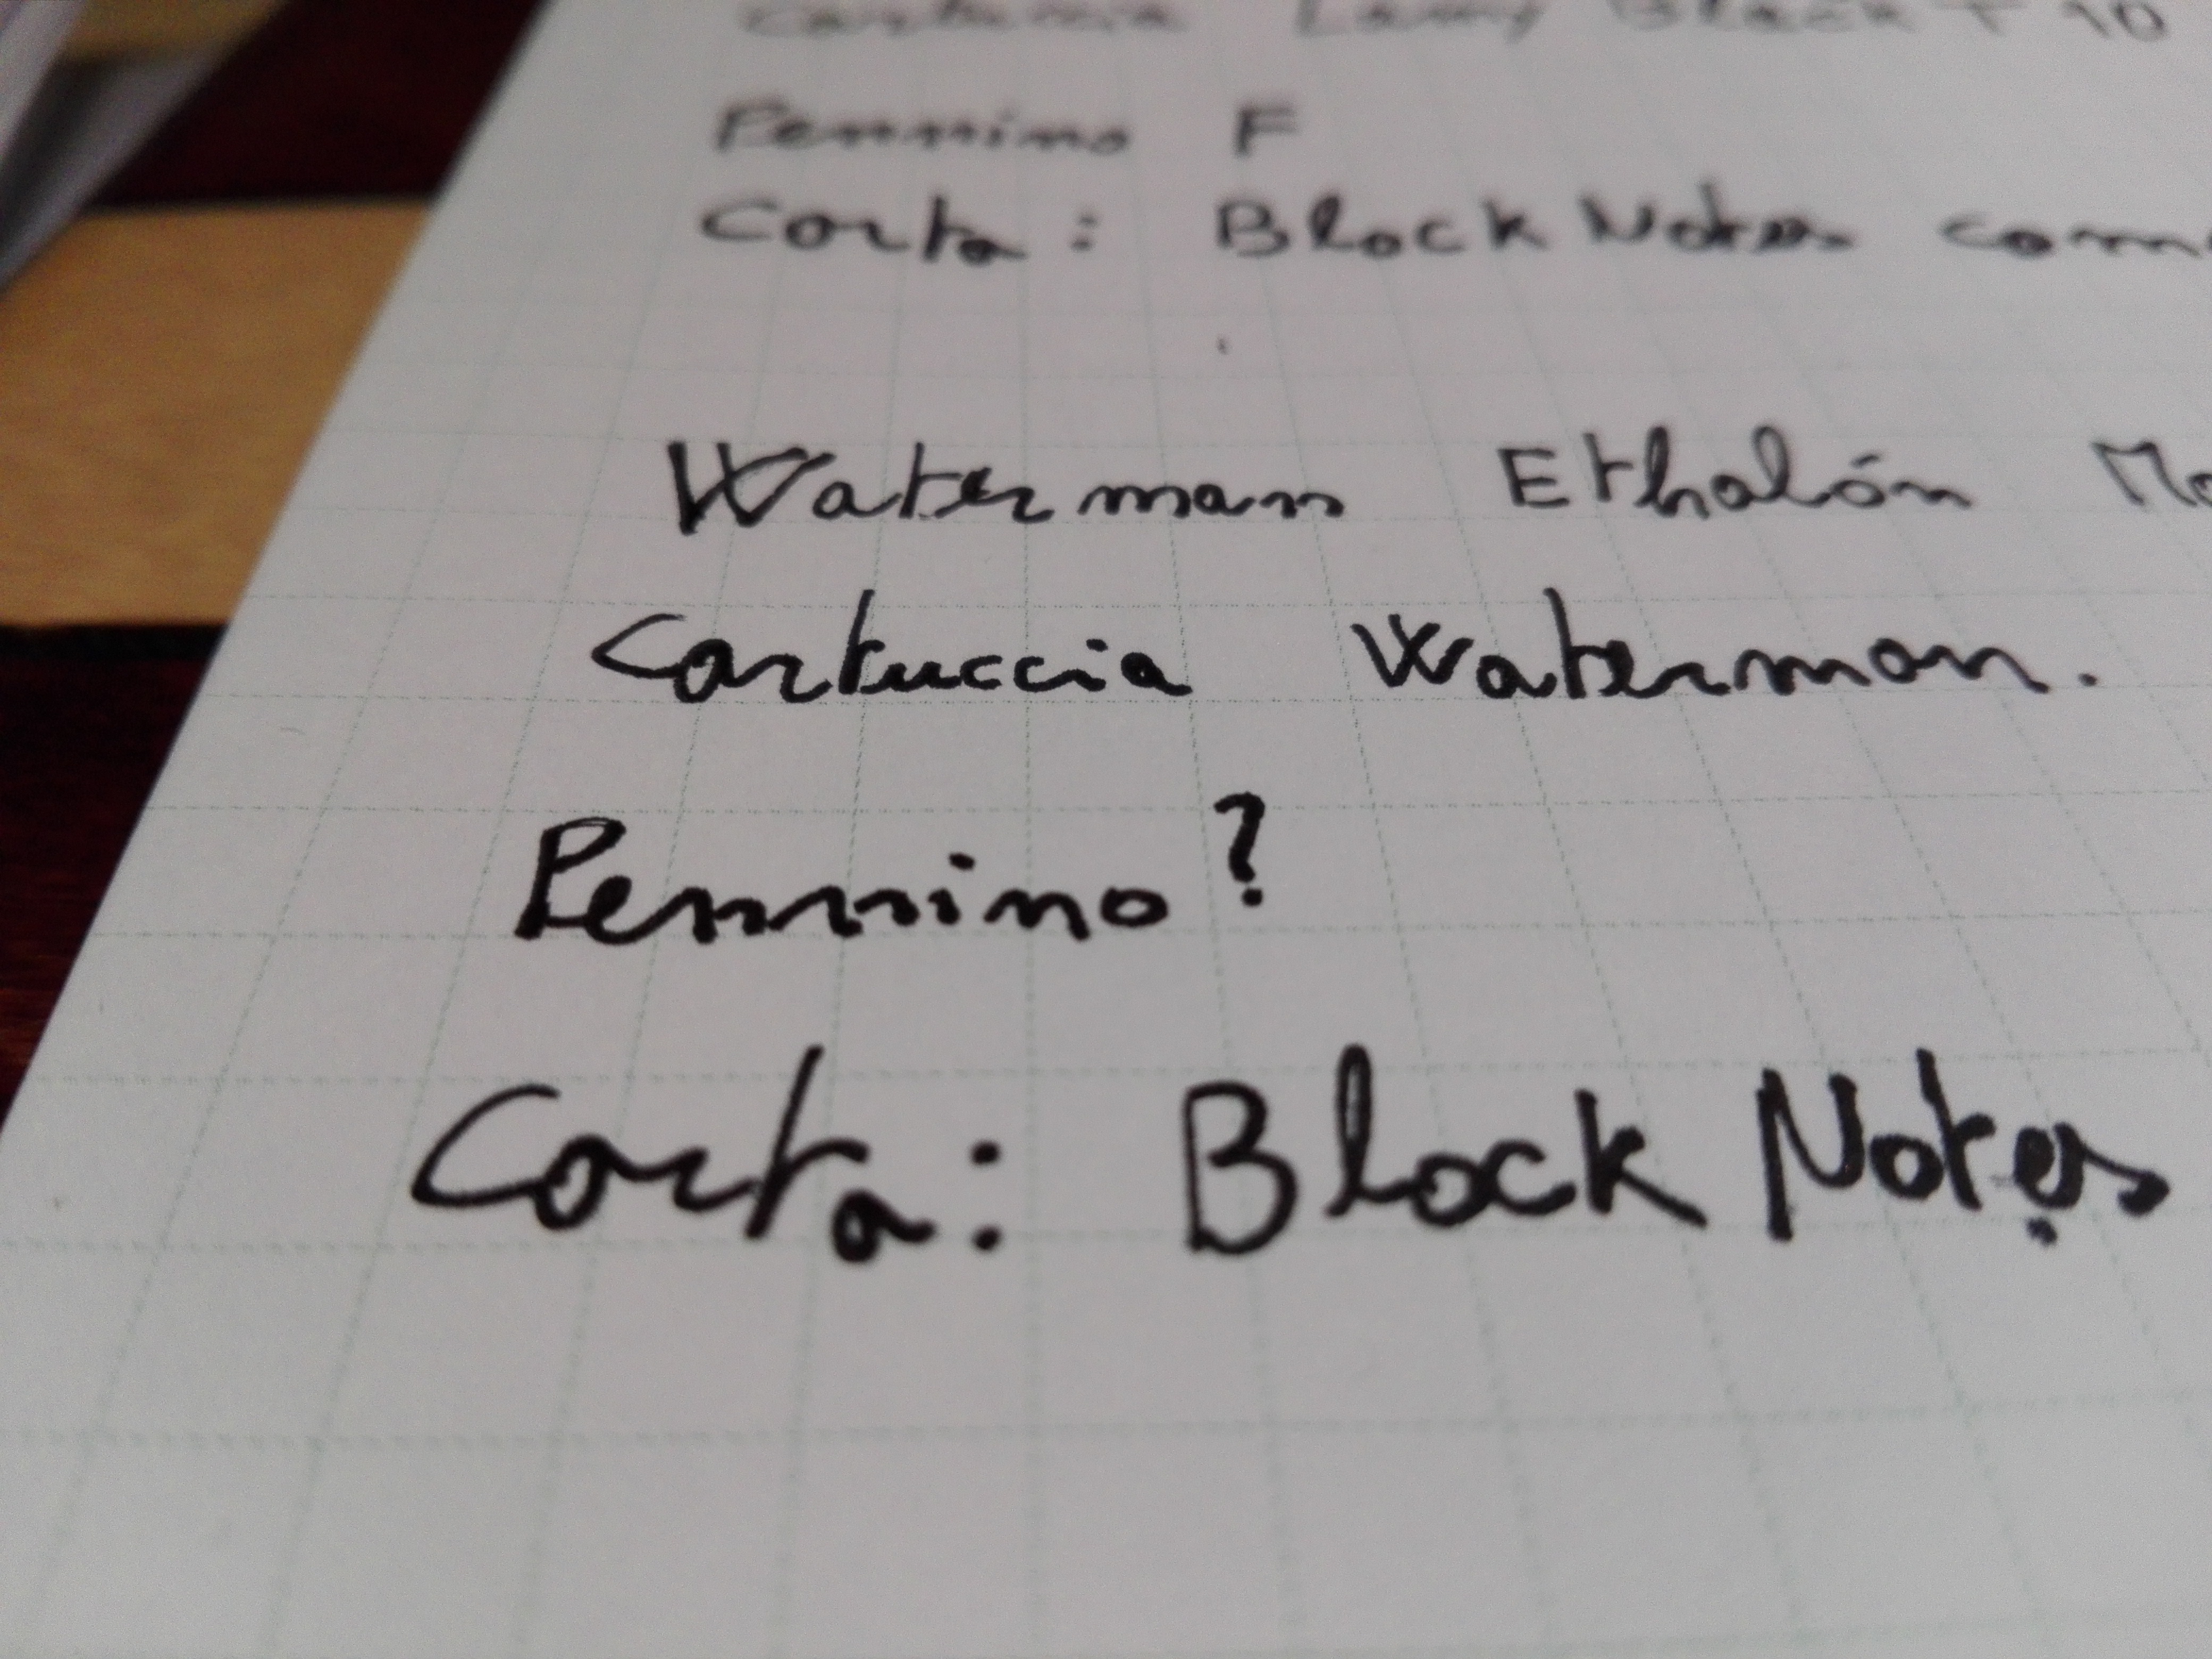 Cartuccia Lamy Black T 10
Pennino F
Carta: Block Notes
Waterman Ethalón
Cartuccia Waterman.
Pennino?
Carta: Block Notes